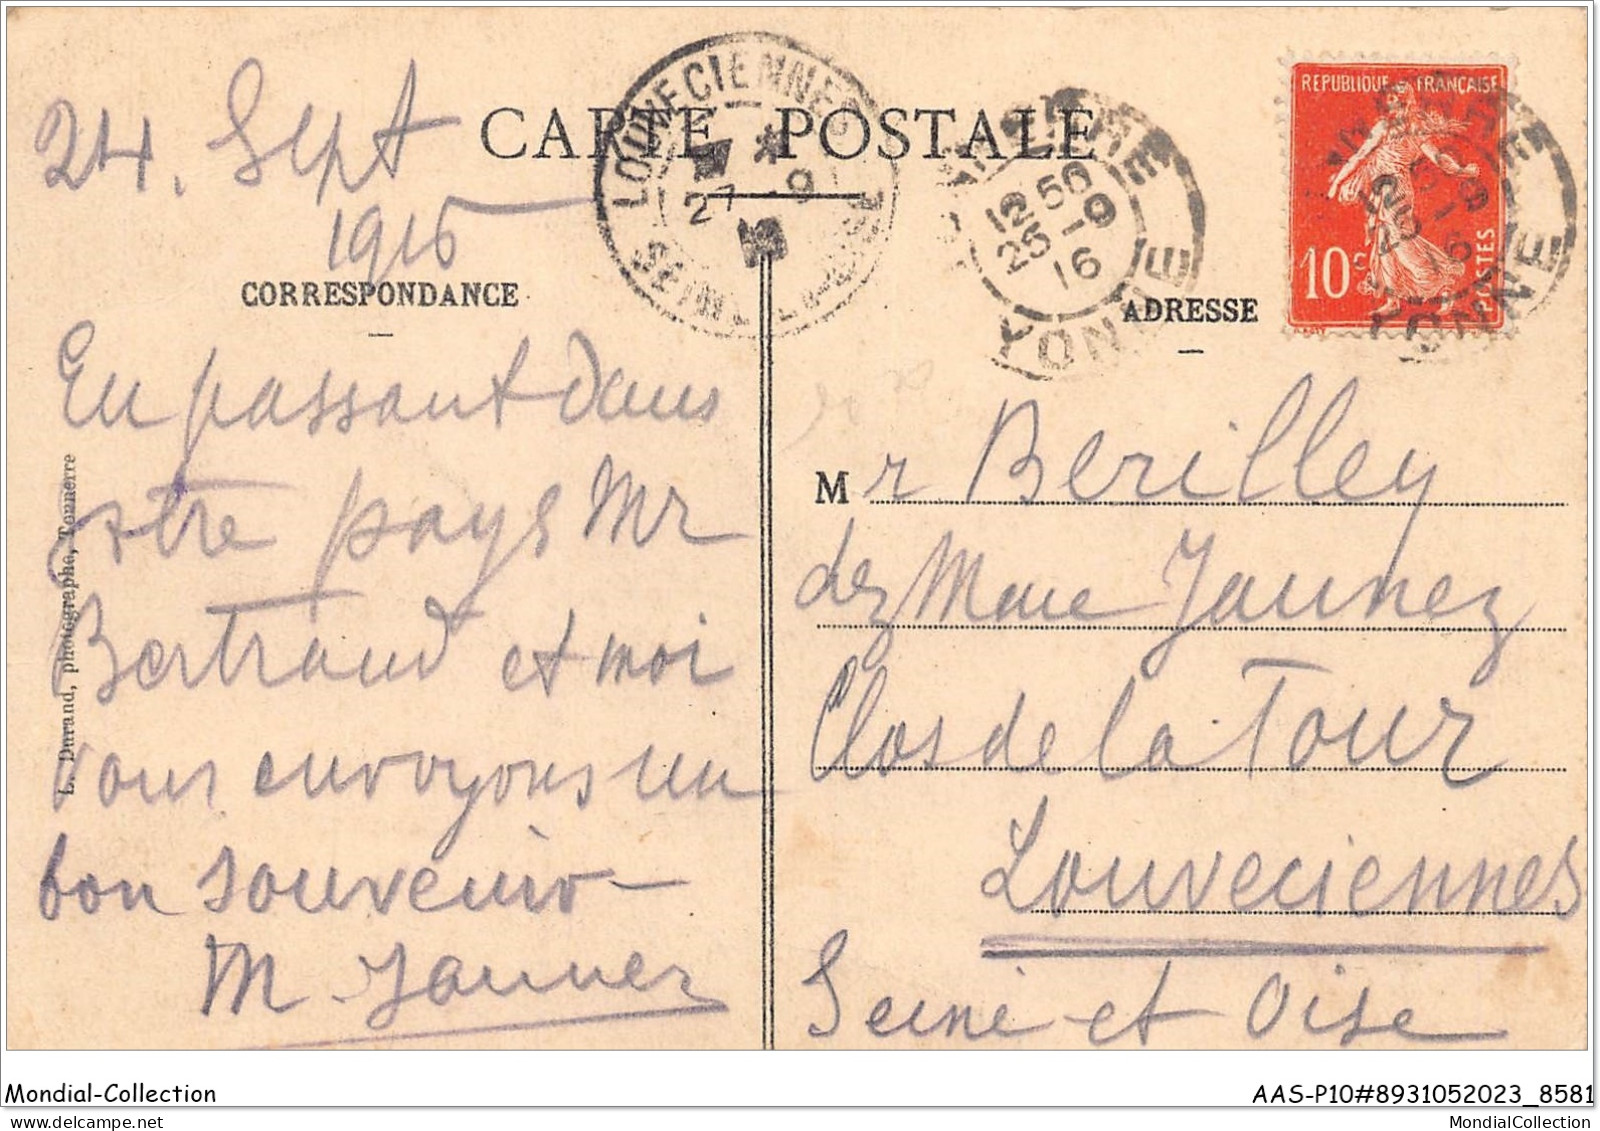 24. Sept
1916
CARTE POSTALE
CORRESPONDANCE
ADRESSE
LOUVECIENNES
27 -9
SEINE-ET-OISE
12 50
25 -9
16
YONNE
RÉPUBLIQUE FRANÇAISE
10c
POSTES
12 50
25 -9
16
YONNE
En passant dans
votre pays Mr
Bertrand et moi
vous envoyons un
bon souvenir —
M. Jaunez
L. Durand, photographe, Tonnerre
Mr Berilley
chez Mme Jaunez
Clos de la Tour
Louveciennes
Seine et Oise
Mondial-Collection
AAS-P10#8931052023_8581
MondialCollection
MondialCollection